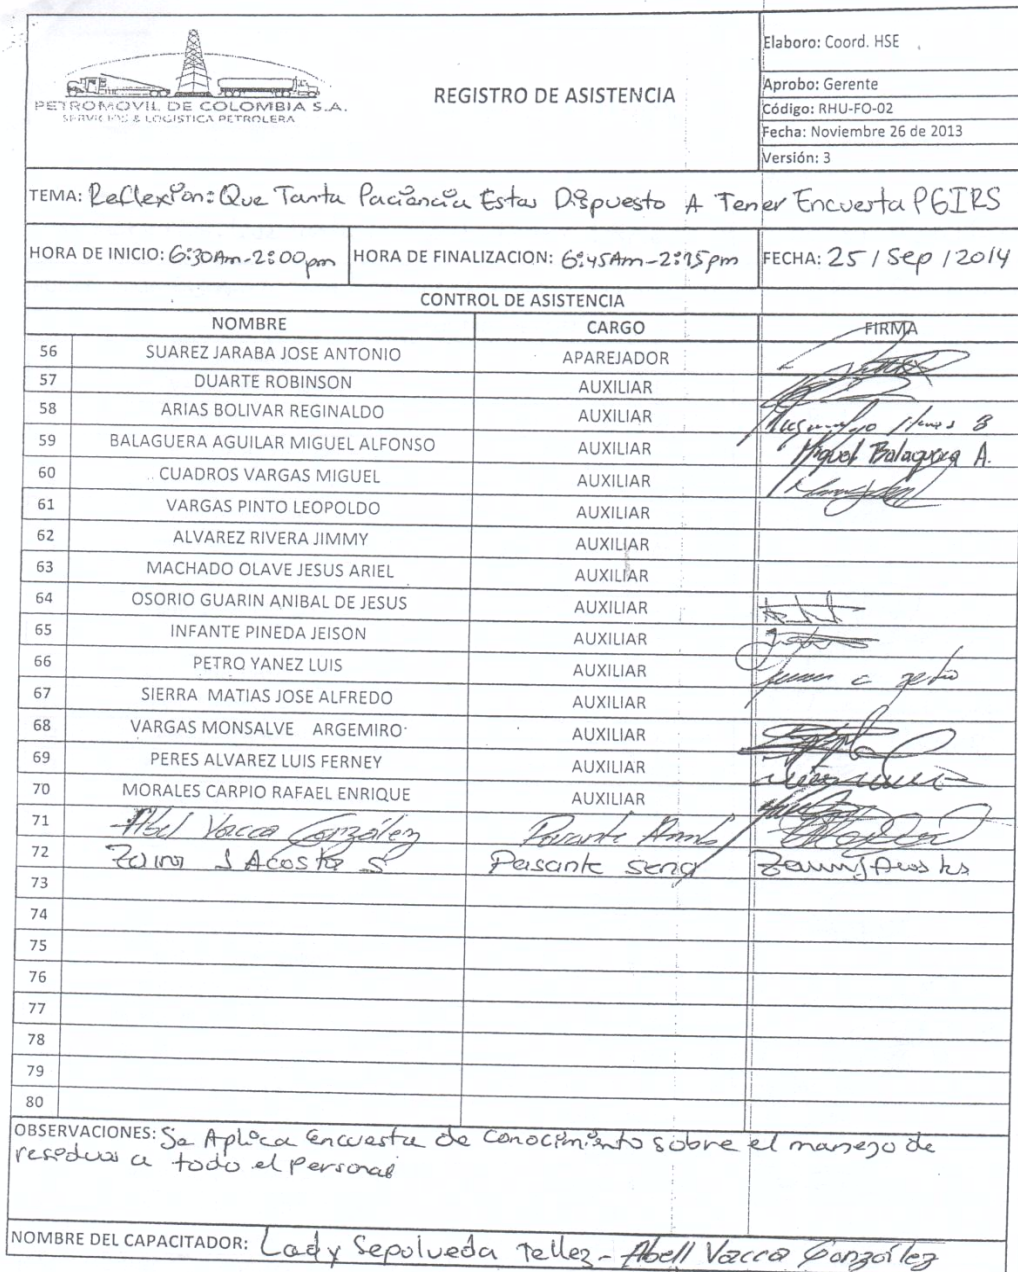 PETROMOVIL DE COLOMBIA S.A.
SERVICIOS & LOGISTICA PETROLERA
REGISTRO DE ASISTENCIA
Elaboro: Coord. HSE
Aprobo: Gerente
Código: RHU-FO-02
Fecha: Noviembre 26 de 2013
Versión: 3
TEMA: Reflexion: Que Tanta Paciencia Estas Dispuesto A Tener Encuesta PGIRS
HORA DE INICIO: 6:30Am-2:00pm HORA DE FINALIZACION: 6:45Am-2:15pm FECHA: 25/Sep/2014
CONTROL DE ASISTENCIA
NOMBRE CARGO FIRMA
56 SUAREZ JARABA JOSE ANTONIO APAREJADOR
57 DUARTE ROBINSON AUXILIAR
58 ARIAS BOLIVAR REGINALDO AUXILIAR
59 BALAGUERA AGUILAR MIGUEL ALFONSO AUXILIAR Miguel Balaguera A.
60 CUADROS VARGAS MIGUEL AUXILIAR
61 VARGAS PINTO LEOPOLDO AUXILIAR
62 ALVAREZ RIVERA JIMMY AUXILIAR
63 MACHADO OLAVE JESUS ARIEL AUXILIAR
64 OSORIO GUARIN ANIBAL DE JESUS AUXILIAR
65 INFANTE PINEDA JEISON AUXILIAR
66 PETRO YANEZ LUIS AUXILIAR
67 SIERRA MATIAS JOSE ALFREDO AUXILIAR
68 VARGAS MONSALVE ARGEMIRO AUXILIAR
69 PERES ALVAREZ LUIS FERNEY AUXILIAR
70 MORALES CARPIO RAFAEL ENRIQUE AUXILIAR
71 Abel Vacca González Pasante
72 J Acosta S Pasante Sena
73
74
75
76
77
78
79
80
OBSERVACIONES: Se Aplica encuesta de conocimiento sobre el manejo de
residuos a todo el Personal
NOMBRE DEL CAPACITADOR: Lady Sepulveda Tellez - Abell Vacca González